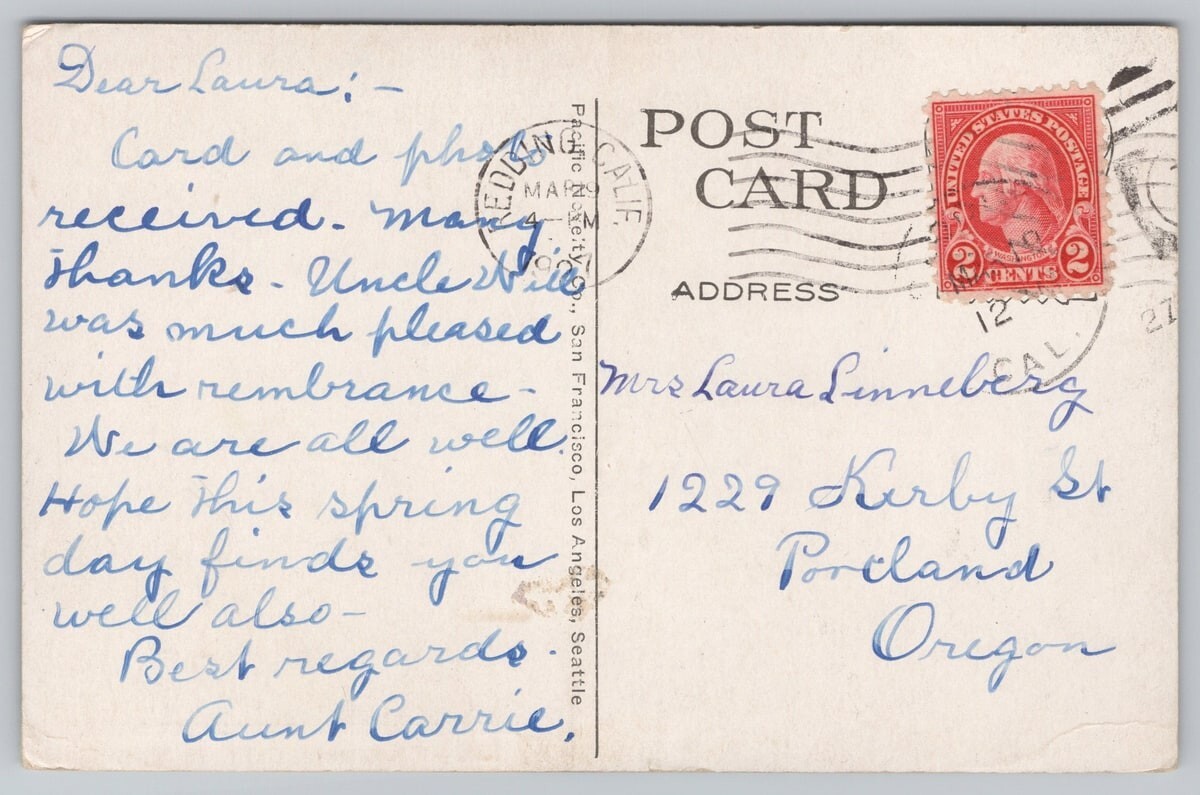 Dear Laura:-
Card and photo
received. Many
thanks. Uncle Will
was much pleased
with rembrance-
We are all well.
Hope this spring
day finds you
well also-
Best regards.
Aunt Carrie.
Pacific Novelty Co., San Francisco, Los Angeles, Seattle
REDDING, CALIF.
MAR 9
4- PM
192
POST
CARD
ADDRESS
UNITED STATES POSTAGE
WASHINGTON
2 CENTS 2
12
CAL.
27
Mrs Laura Linneberg
1229 Kerby St
Portland
Oregon